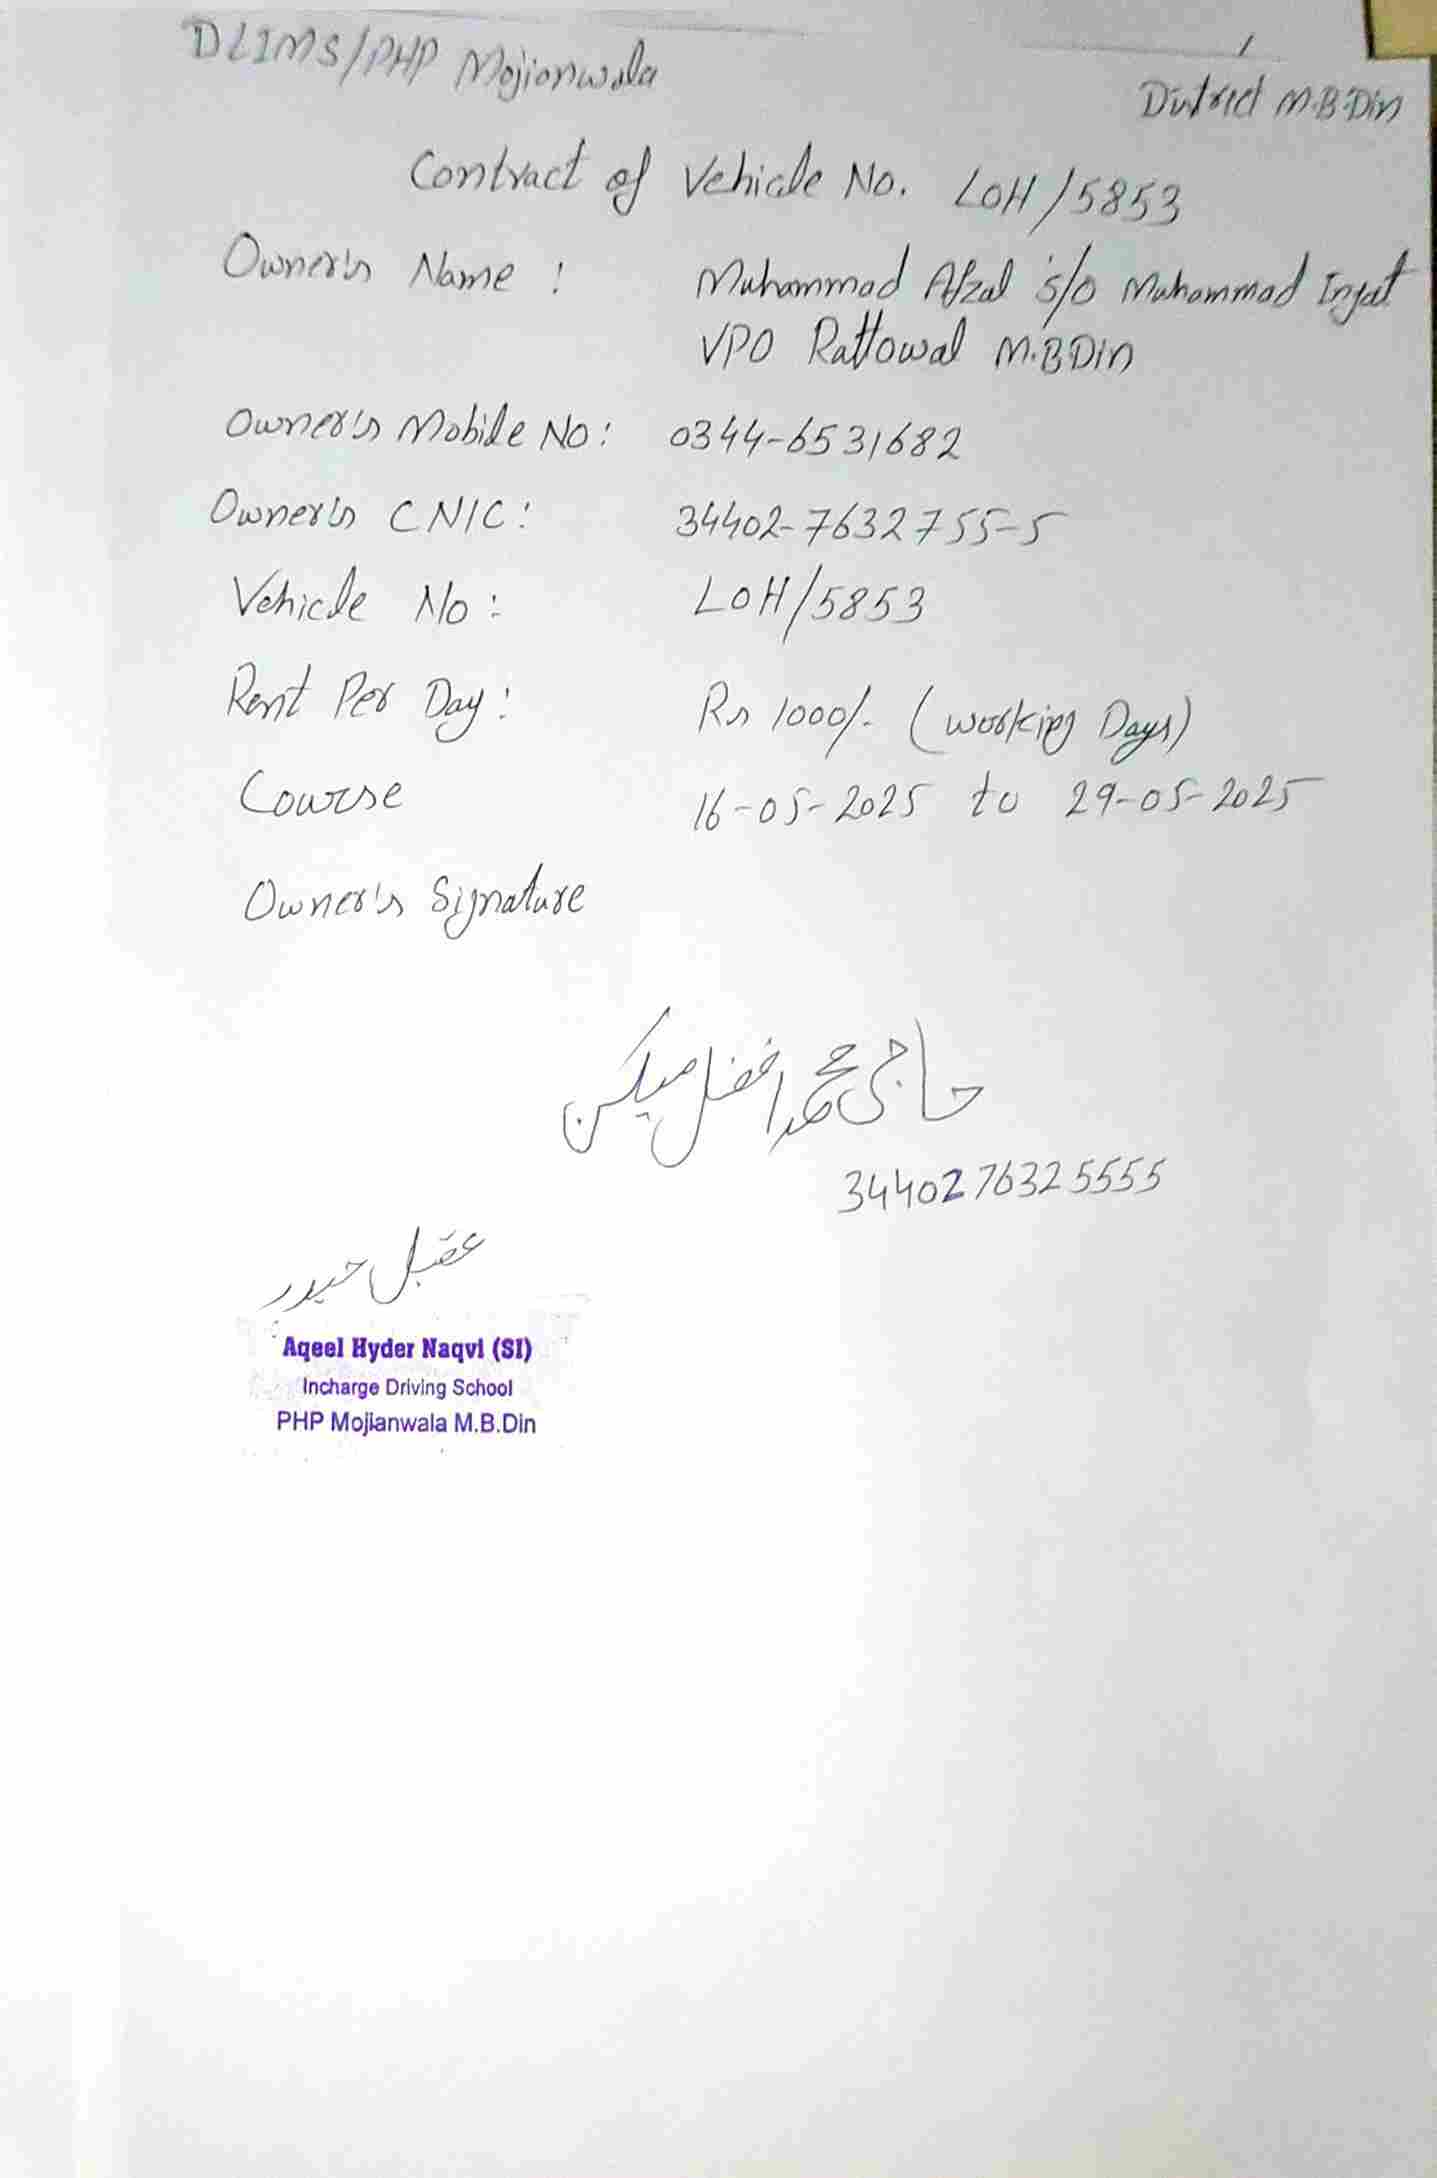 DLIMS/PHP Mojianwala
District M.B.Din
Contract of Vehicle No. LOH/5853
Owner's Name : Muhammad Afzal s/o Muhammad Inyat
VPO Rattowal M.B Din
Owner's Mobile No: 0344-6531682
Owner's CNIC: 34402-7632755-5
Vehicle No: LOH/5853
Rent Per Day: Rs 1000/- (Working Days)
Course 16-05-2025 to 29-05-2025
Owner's Signature
حاجی محمد افضل میکن
3440276325555
عقیل حیدر
Aqeel Hyder Naqvi (SI)
Incharge Driving School
PHP Mojianwala M.B.Din